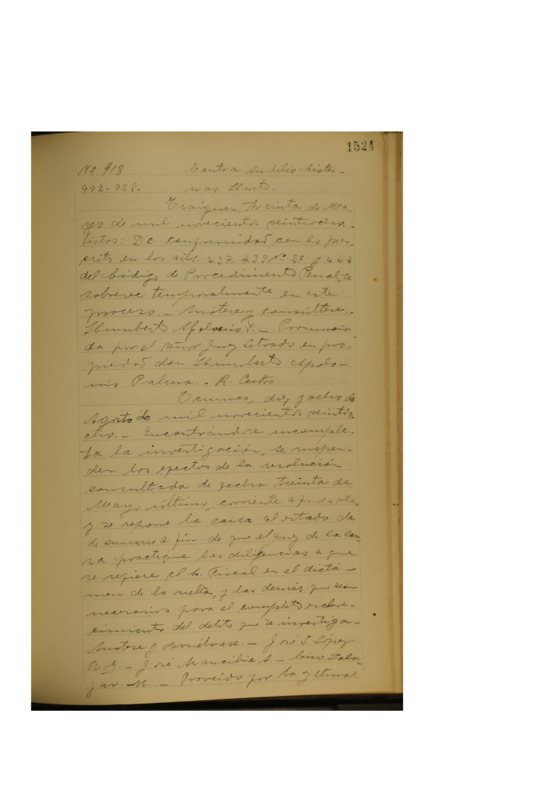 1524
No 918 Contra
992-928. Hurto.
Traiguen, treinta de Ma-
yo de mil novecientos veintiocho.
Vistos: De conformidad con lo pres-
crito en los arts. 437 439 No 2º y 444
del Código de Procedimiento Penal, se
sobresee temporalmente en este
proceso. - Anótese y consúltese. -
Humberto Apolonio P. - Pronuncia-
da por el señor Juez Letrado en pro-
piedad don Humberto Apolo-
nio Palena. - R. Castro
Temuco, diez y ocho de
Agosto de mil novecientos veintio-
cho. - Encontrándose incomple-
ta la investigación, se suspen-
den los efectos de la resolución
consultada de fecha treinta de
Mayo último, corriente a fs. 14 vta.
y se repone la causa al estado de
de sumario a fin de que el Juez de la cau-
sa practique las diligencias a que
se refiere el Sr. Fiscal en el dictá-
men de la vuelta, y las demás que sean
necesarias para el completo esclare-
cimiento del delito que se investiga. -
Anótese y devuélvase. - José S. López
- José Mancilla A. - Lino Sala-
zar. M. - Proveído por la Iltma.